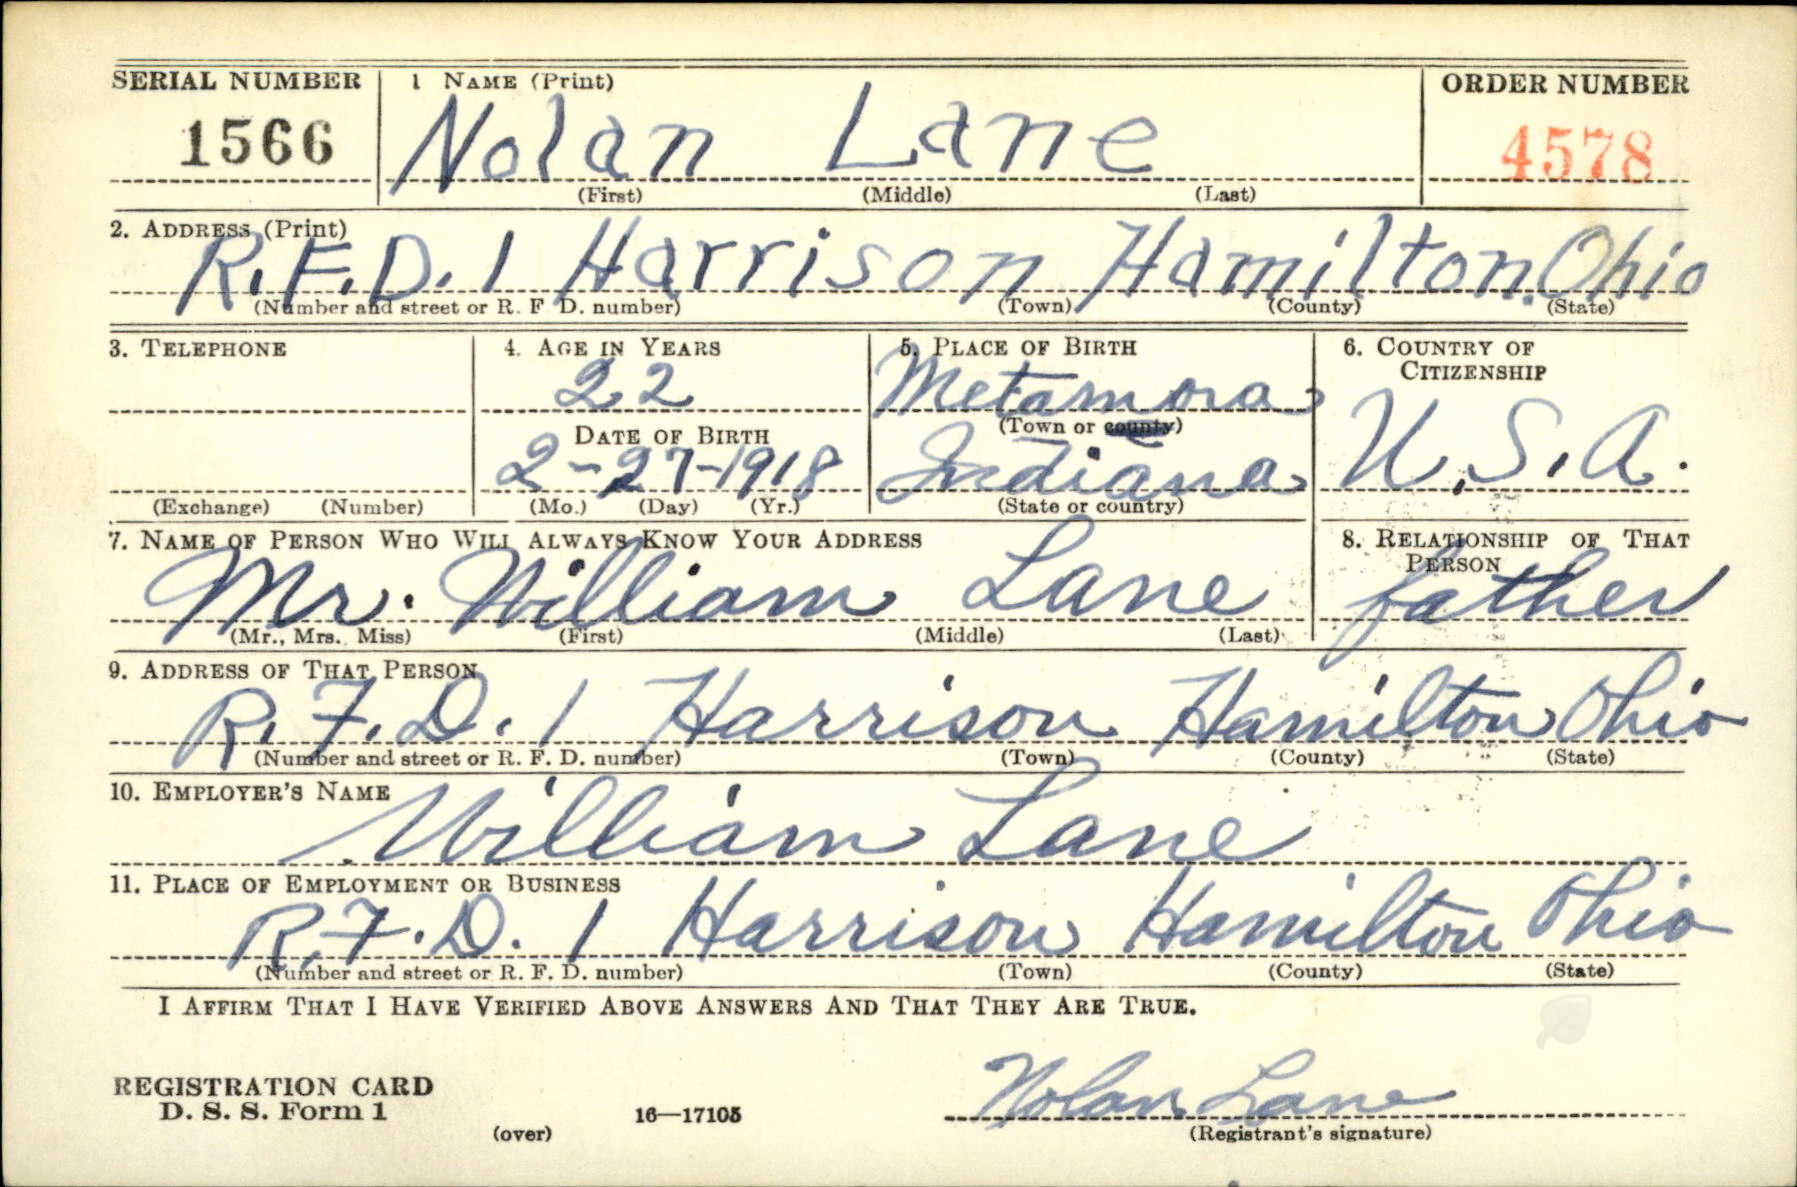 SERIAL NUMBER 1 NAME (Print) ORDER NUMBER
1566 Nolan Lane 4578
(First) (Middle) (Last)
2. ADDRESS (Print)
R.F.D. 1 Harrison Hamilton. Ohio
(Number and street or R. F D. number) (Town) (County) (State)
3. TELEPHONE 4. AGE IN YEARS 5. PLACE OF BIRTH 6. COUNTRY OF
CITIZENSHIP
22 Metamora
(Town or county)
DATE OF BIRTH
2-27-1918 Indiana U.S.A.
(Exchange) (Number) (Mo.) (Day) (Yr.) (State or country)
7. NAME OF PERSON WHO WILL ALWAYS KNOW YOUR ADDRESS 8. RELATIONSHIP OF THAT
PERSON
Mr. William Lane father
(Mr., Mrs. Miss) (First) (Middle) (Last)
9. ADDRESS OF THAT PERSON
R.F.D. 1 Harrison Hamilton Ohio
(Number and street or R. F. D. number) (Town) (County) (State)
10. EMPLOYER'S NAME
William Lane
11. PLACE OF EMPLOYMENT OR BUSINESS
R.F.D. 1 Harrison Hamilton Ohio
(Number and street or R. F. D. number) (Town) (County) (State)
I AFFIRM THAT I HAVE VERIFIED ABOVE ANSWERS AND THAT THEY ARE TRUE.
REGISTRATION CARD
D. S. S. Form 1 16—17105 Nolan Lane
(over) (Registrant's signature)